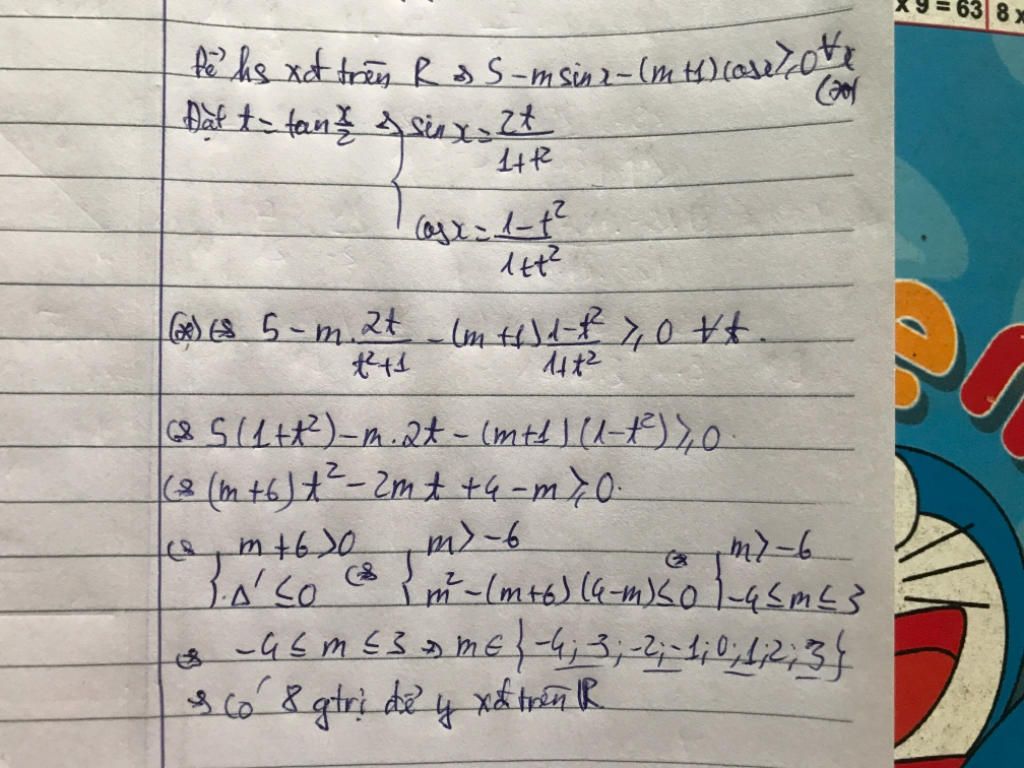 x 9 = 63 8 x
Để hs xđ trên R => 5 - m sin x - (m+1) cos x ≥ 0 ∀x
(*)
Đặt t = tan x/2 => { sin x = 2t/(1+t²)
cos x = (1-t²)/(1+t²)
(*) <=> 5 - m . 2t/(t²+1) - (m+1) (1-t²)/(1+t²) ≥ 0 ∀t.
<=> 5(1+t²) - m.2t - (m+1)(1-t²) ≥ 0.
<=> (m+6)t² - 2mt + 4 - m ≥ 0.
<=> { m+6 > 0 <=> { m > -6 <=> { m > -6
Δ' ≤ 0 m² - (m+6)(4-m) ≤ 0 -4 ≤ m ≤ 3
<=> -4 ≤ m ≤ 3 => m ∈ {-4; -3; -2; -1; 0; 1; 2; 3}
=> có 8 gtrị để y xđ trên R